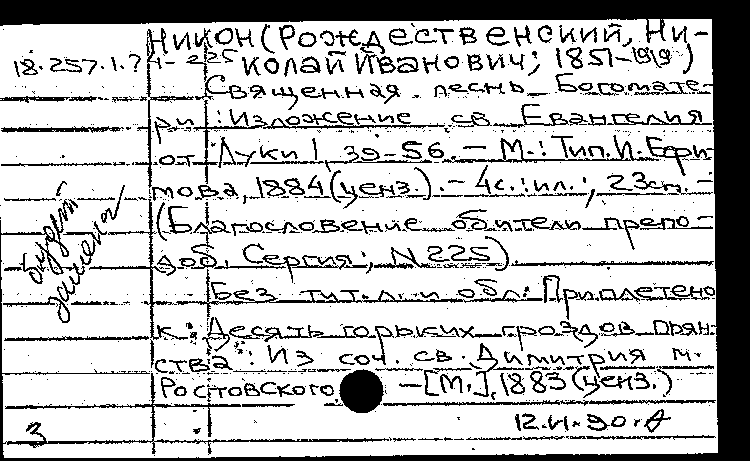 Никон (Рождественский, Ни-
18.257.1.74-225 колай Иванович; 1851-1919)
Священная песнь Богомате-
ри: Изложение св. Евангелия
от Луки 1, 39-56. – М.: Тип. И. Ефи-
мова, 1884 (ценз.). – 4с.: ил.; 23см. –
(Благословение обители препо-
доб. Сергия; N 225).
Без тит. л. и обл. Приплетено
к: Десять горьких гроздов пьян-
ства: Из соч. св. Димитрия м.
Ростовского – [М.], 1883 (ценз.)
будет
замена
3